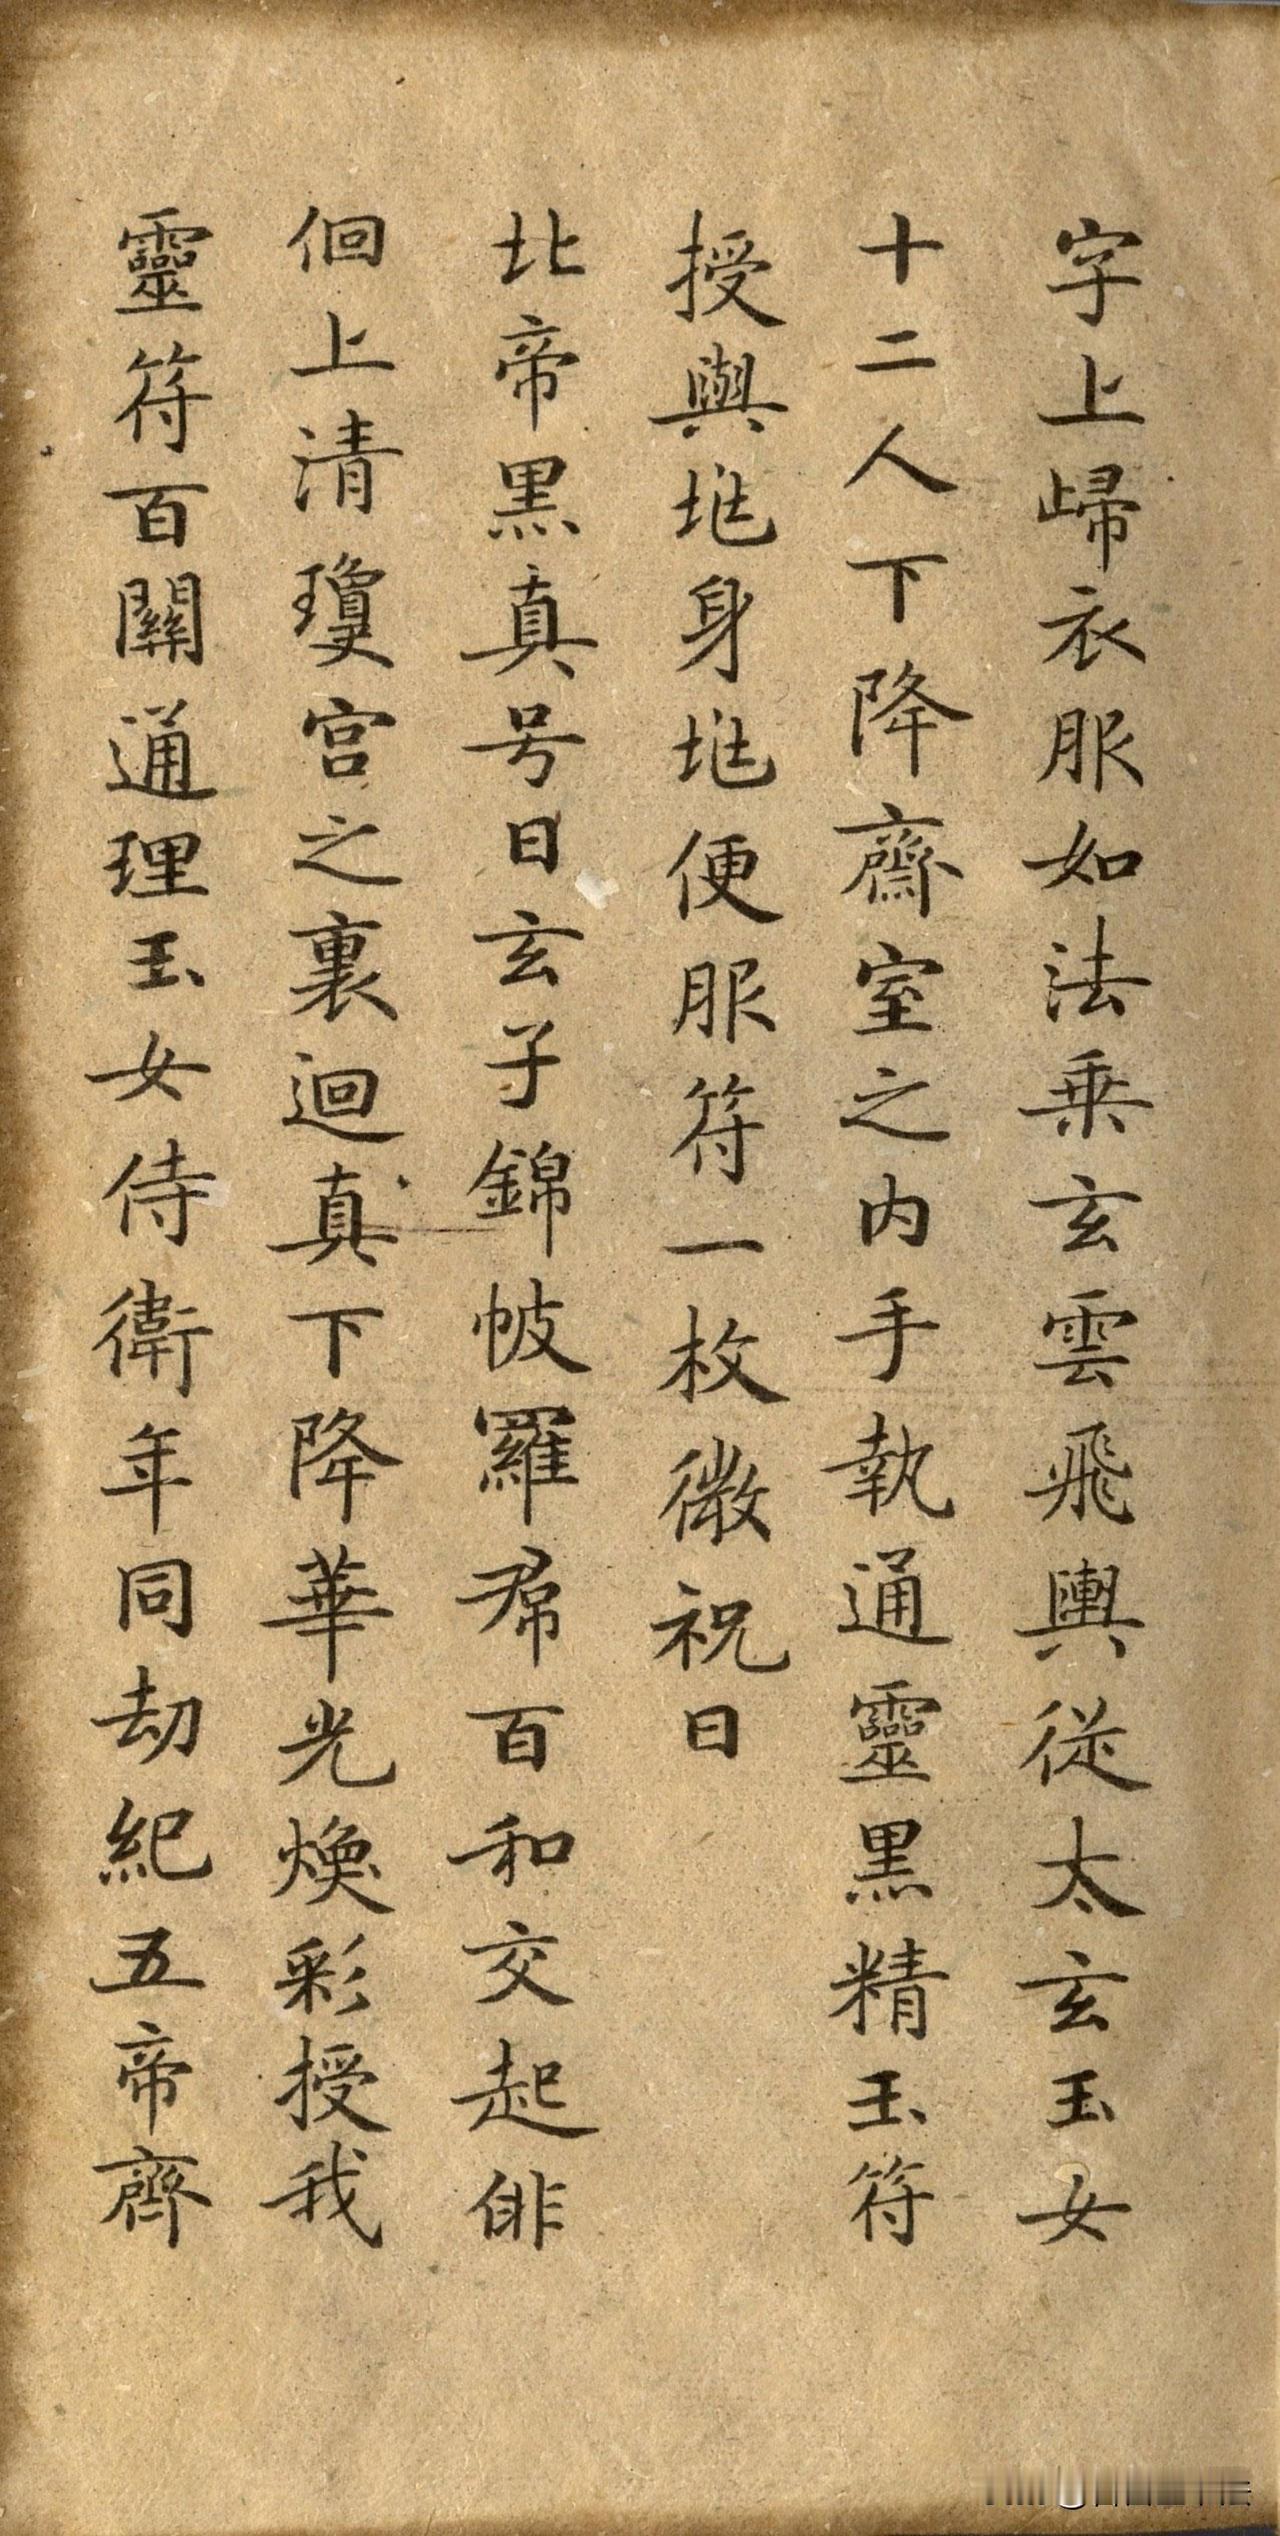 字上歸衣服如法乗玄雲飛輿從太玄玉女
十二人下降齋室之內手執通靈黒精玉符
授與兆身兆便服符一枚微祝曰
北帝黒真号曰玄子錦帔羅帬百和交起俳
佪上清瓊宮之裏迴真下降華光煥彩授我
靈符百關通理玉女侍衛年同劫紀五帝齊